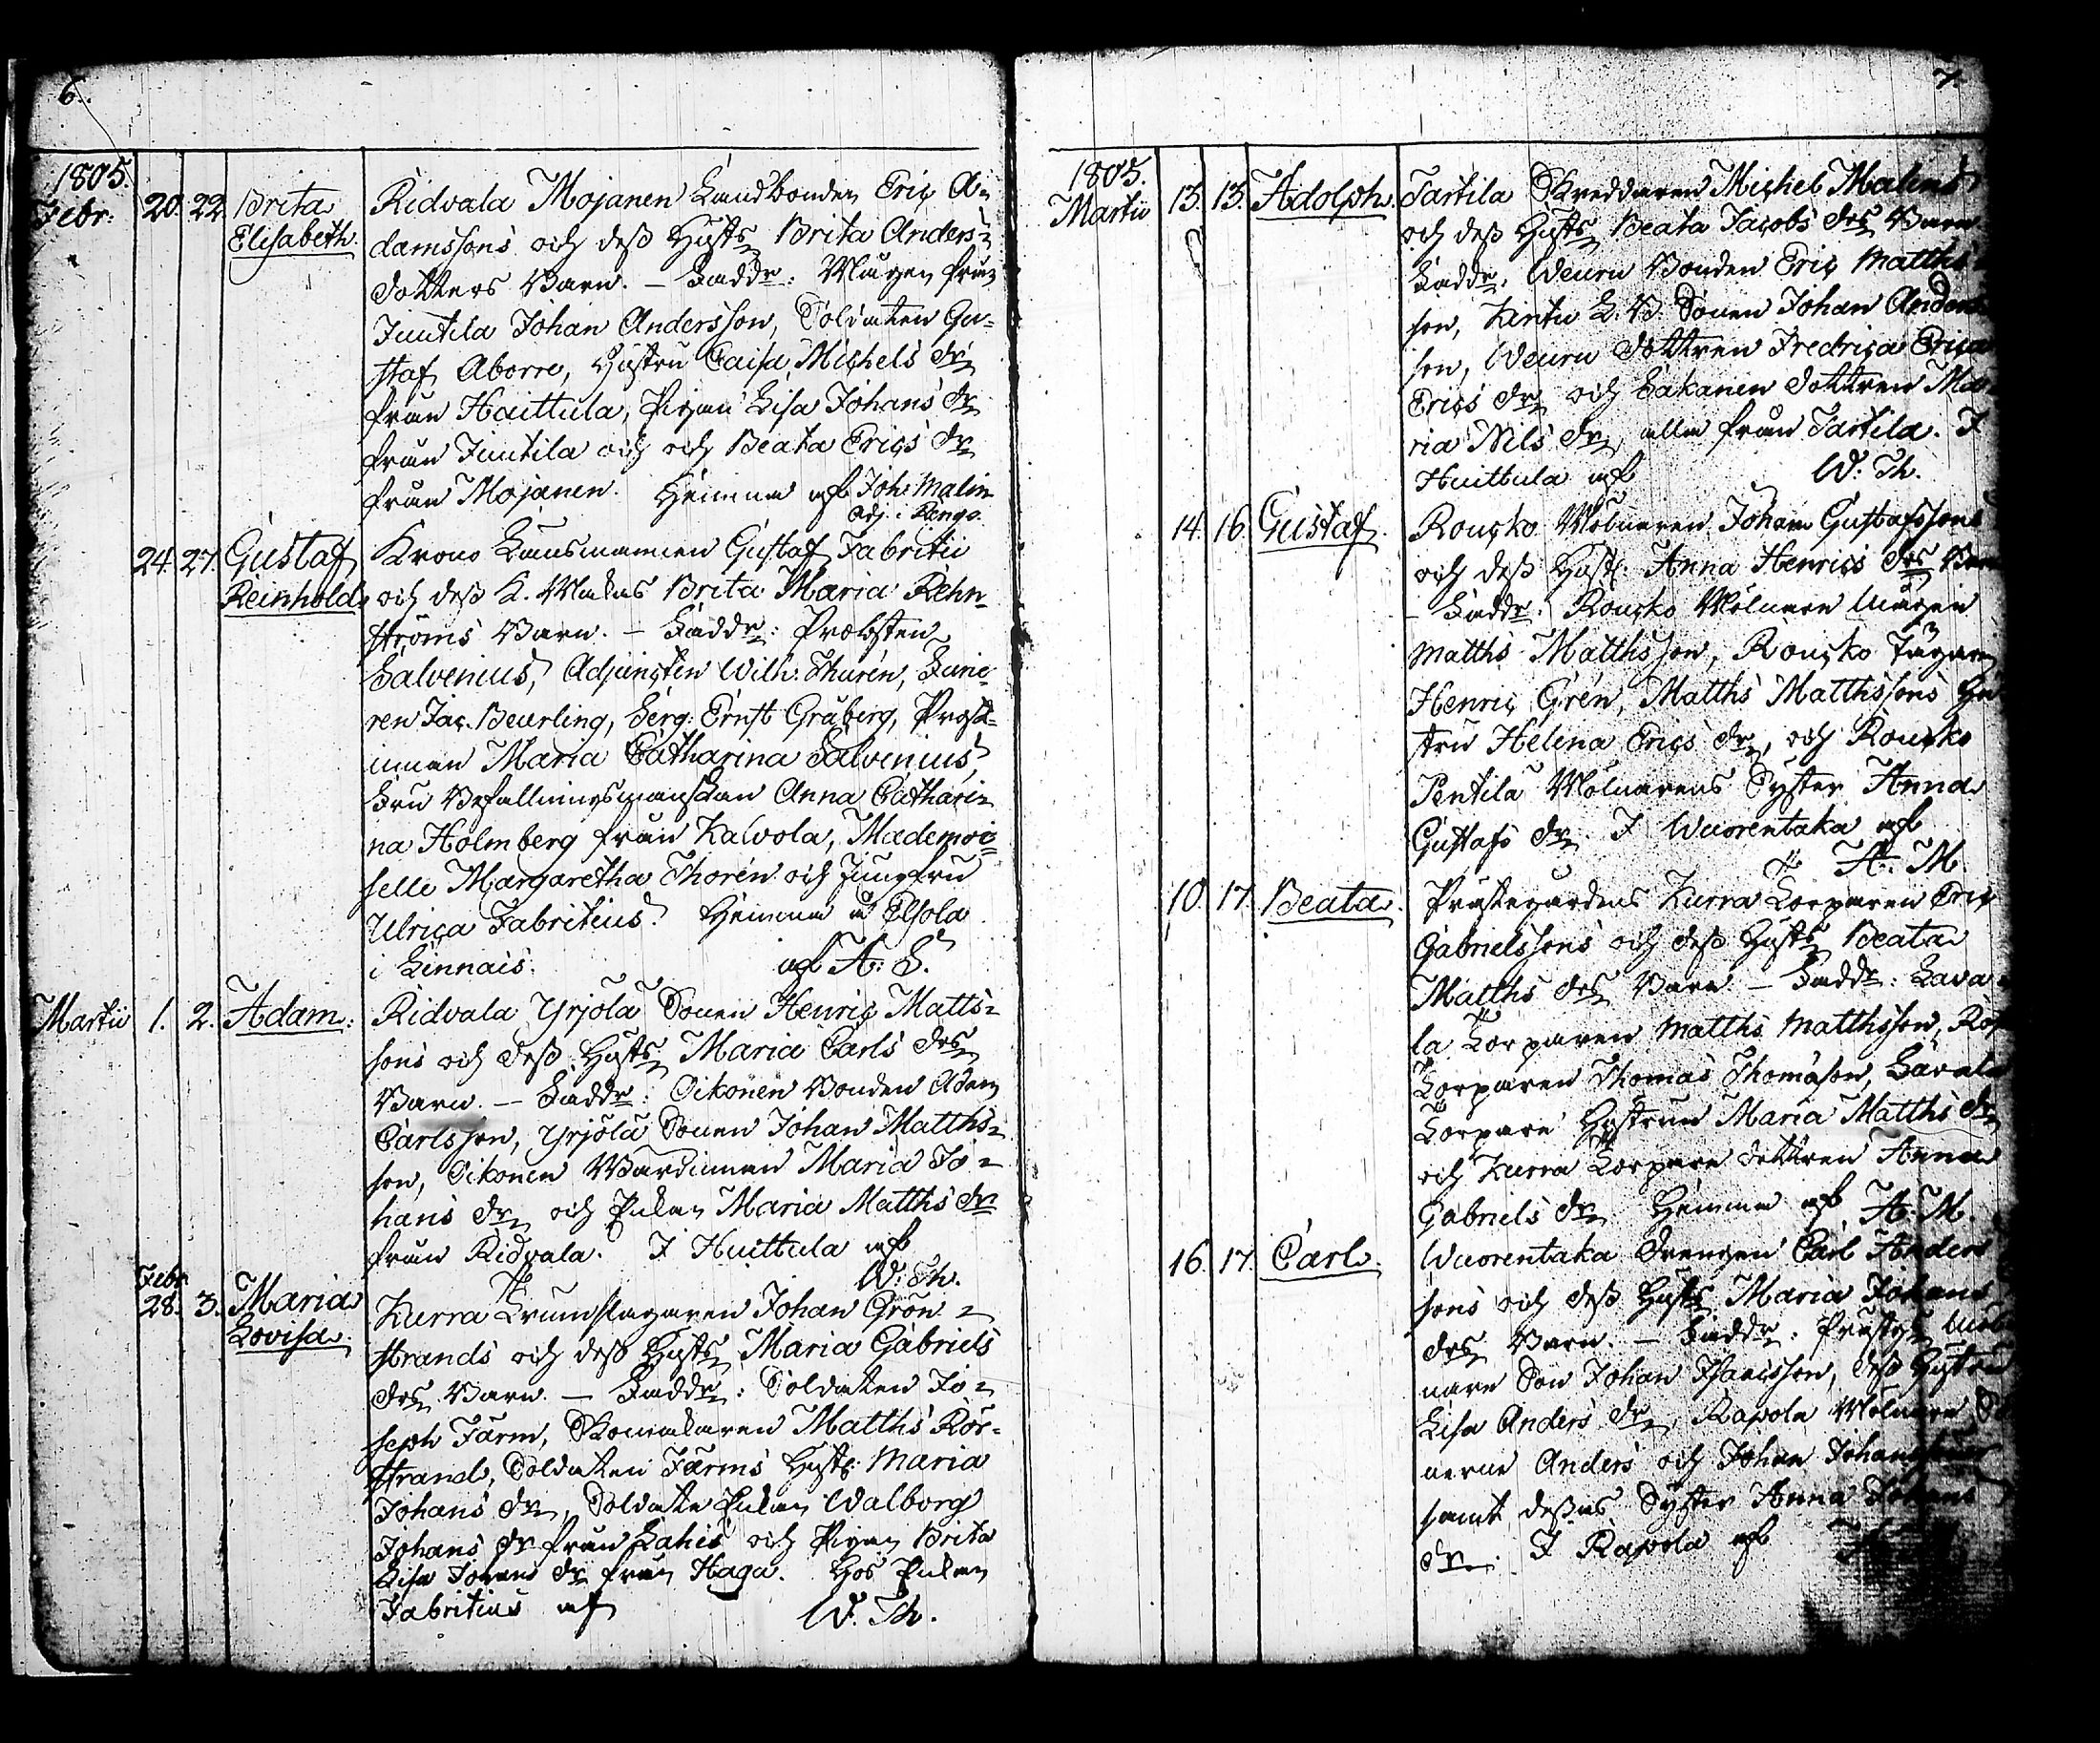 6.
1805.
Febr: 20. 22. Brita Ridvala Mojanen Landbonden Eric A=
Elisabeth. damssons och dess Hustrs Brita Anders=
dotters Barn. – Faddr: Mågen från
Juutila Johan Andersson, Soldaten Gu=
staf Aborre, Hustru Caisa Michels dr
från Haittula, Pigan Lisa Johans dr
från Juutila och och Beata Erics dr
från Mojanen. Hemma af Joh: Malin
Adj. i Rengo.
24. 27. Gustaf Krono Länsmannen Gustaf Fabritii
Reinhold. och dess K. Makas Brita Maria Rehn=
ströms Barn. – Faddr: Probsten
Salvenius, Adjuncten Wilh: Thurén, Juni=
ren Jac. Beurling, Serg: Ernst Gråberg, Prost=
innan Maria Catharina Salvenius,
Fru Befallningsmanskan Anna Cathari=
na Holmberg från Kalvola, Mademoi=
selle Margaretha Thorén och Jungfru
Ulrica Fabritius. Hemma å
i Linnais. af A: S.
Martii 1. 2. Adam. Ridvala Yrjölä Sonen Henric Matts=
sons och dess Hustrs Maria Carls drs
Barn. – Faddr: Oikonen Bonden Adam
Carlsson, Yrjölä Sonen Johan Matths=
son, Oikonen Wärdinnan Maria Jo=
hans dr och Enkan Maria Matths dr
från Ridvala. I Huittula af
W: Th.
Febr.
28. 3. Maria Kurra Trumslagaren Johan Grön=
Lovisa. strands och dess Hustrs Maria Gabriels
drs Barn. – Faddr: Soldaten Jo=
seph Färm, Skomakaren Matths Rör=
strand, Soldaten Färms Hustr: Maria
Johans dr, Soldate Enkan Walborg
Johans dr från Lahis och Pigan Brita
Lisa Johans dr från Haga. Hos Enkan
Fabritius af W. Th.
7.
1805.
Martii 13. 13. Adolph. Tarttila Skreddaren Michel Malins
och dess Hustrs Beata Jacobs drs Barn
Faddr: Weuru Bonden Eric Matths=
son, Kintu L. B. Sonen Johan Anders
son, Weuru dottren Fredrica Erica
Erics dr och Sakanen dottren Ma=
ria Nils dr, alla från Tarttila. I
Huittula af W. Th.
14. 16. Gustaf. Roucko Mölnaren Johan Gustafssons
och dess Hustr: Anna Henrics drs Barn
– Faddr: Roucko Mölnare Mågen
Matths Matthsson, Roucko Jägaren
Henric Grén, Matths Matthssons Hu
stru Helena Erics dr, och Roucko
Pentilä Mölnarens Syster Anna
Gustafs dr. I Wuorentaka af
A. M.
10. 17. Beata. Prästegårdens Kurra Torparen Eric
Gabrielssons och dess Hustrs Beata
Matths drs Barn – Faddr: Lava
la Torparen Matths Matthsson,
Torparen Thomas Thomasson,
Torpare Hustrun Maria Matths dr
och Kurra Torpare dottren Anna
Gabriels dr Hemma af A. M.
16. 17. Carl. Wuorentaka Drengen Carl Anders
sons och dess Hustrs Maria Johans
drs Barn. – Faddr: Prästgs Möl
nare Son Johan Isaacsson, dess Hustru
Lisa Anders dr, Rapola Mölnare Sö
nerne Anders och Johan Johanssöner
samt dessas Syster Anna Johans
dr. I Rapola af